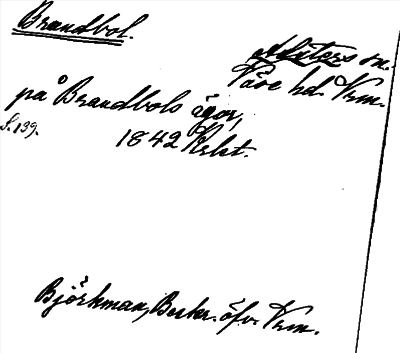 Brandbol.
A. Fäters sn.
Väse hd. Vrm.
på Brandbols ägor,
S. 139.
1842 Krlst.
Björkman, Beskr. öfv. Vrm.